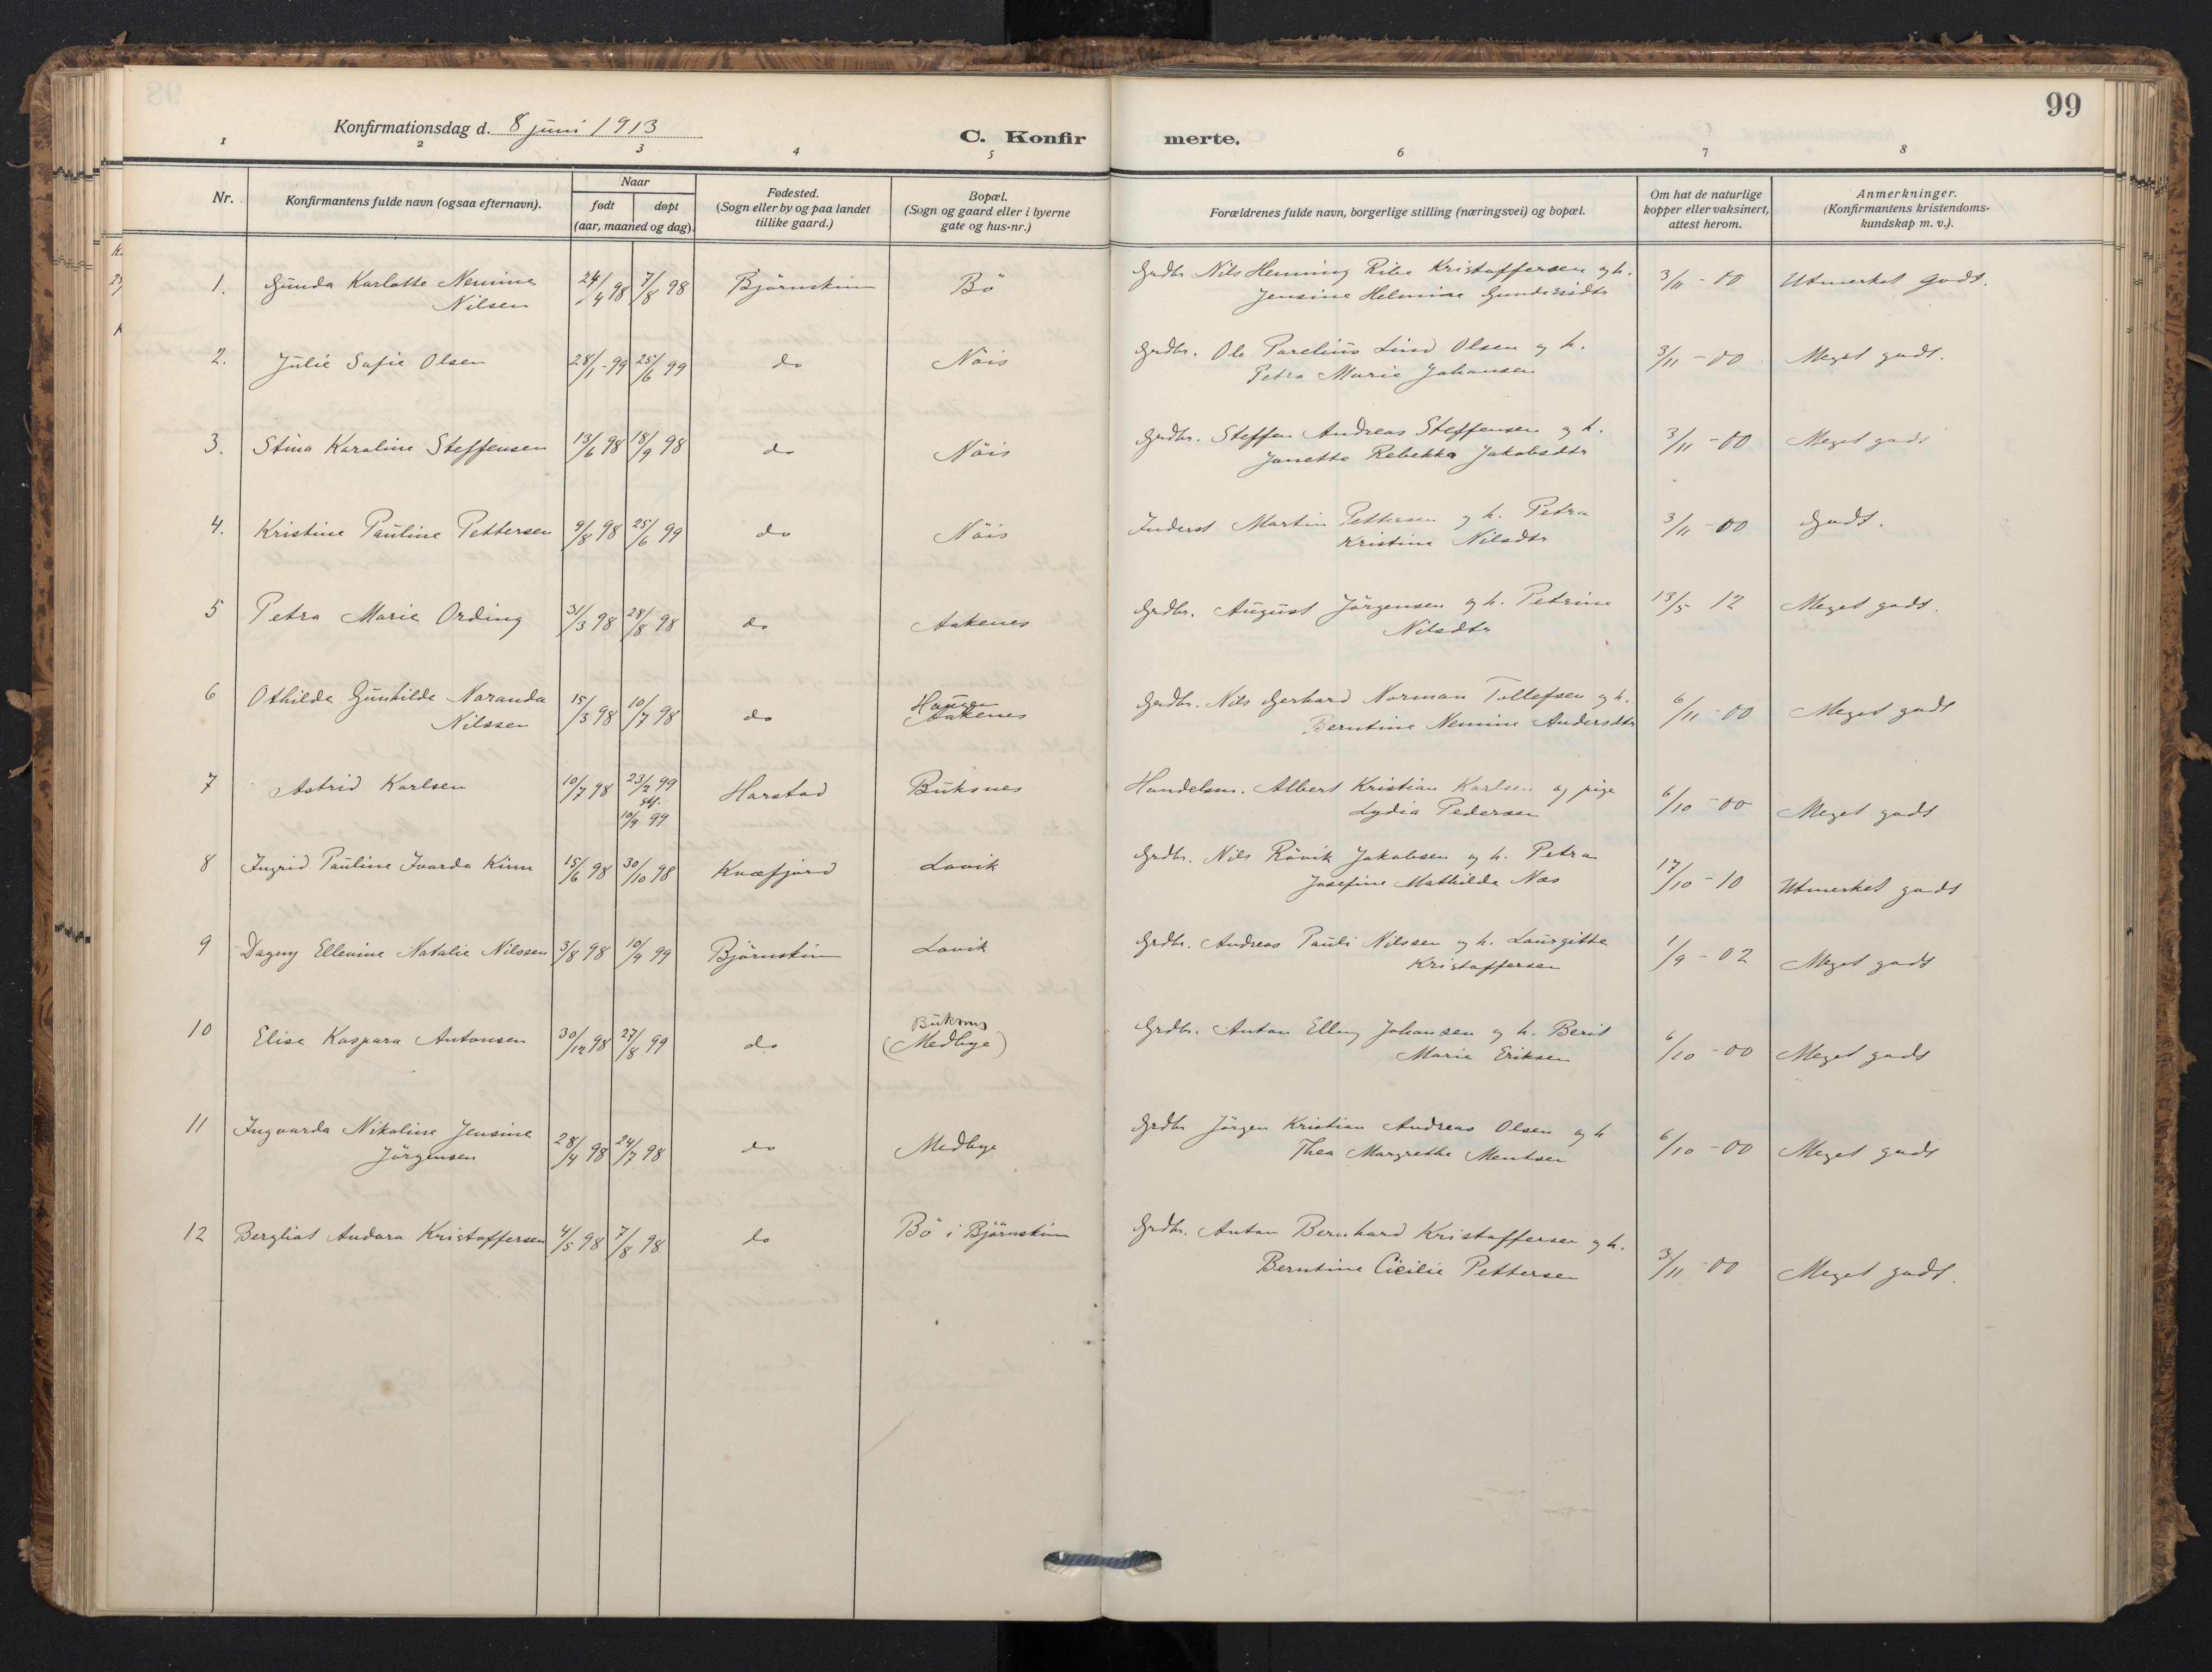 99
Konfirmationsdag d. 8 juni 1913
C. Konfir merte.
1 2 3 4 5 6 7 8
Nr.
Konfirmantens fulde navn (ogsaa efternavn).
Naar
født
døpt
(aar, maaned og dag).
Fødested.
(Sogn eller by og paa landet
tillike gaard.)
Bopæl.
(Sogn og gaard eller i byerne
gate og hus-nr.)
Forældrenes fulde navn, borgerlige stilling (næringsvei) og bopæl.
Om hat de naturlige
kopper eller vaksinert,
attest herom.
Anmerkninger.
(Konfirmantens kristendoms-
kundskap m. v.).
1. Gunda Karlotte Nemine 24/4 98 7/8 98 Björnskin Bö Grdbr. Nils Henning Ribe Kristoffersen og h. 3/11 - 00 Utmerket godt.
Nilsen Jensine Helmine Gundersdtr
2. Julie Sofie Olsen 28/1 - 99 25/6 99 do Nöis Grdbr. Ole Parelius Lind Olsen og h. 3/11 - 00 Meget godt.
Petra Marie Johansen
3. Stina Karoline Steffensen 13/6 98 18/9 98 do Nöis Grdbr. Steffen Andreas Steffensen og h. 3/11 - 00 Meget godt
Janette Rebekka Jakobsdtr
4. Kristine Pauline Pettersen 9/8 98 25/6 99 do Nöis Inderst Martin Pettersen og h. Petra 3/11 - 00 Godt.
Kristine Nilsdtr
5 Petra Marie Ording 31/3 98 28/8 98 do Aakenes Grdbr. August Jörgensen og h. Petrine 13/5 12 Meget godt.
Nilsdtr
6 Othilde Gunhilde Naranda 15/3 98 10/7 98 do Haugen Grdbr. Nils Gerhard Norman Tollefsen og h. 6/11 - 00 Meget godt
Nilssen Aakenes Berntine Nemine Andersdtr
7 Astrid Karlsen 10/7 98 23/2 99 Harstad Buksnes Handelsm. Albert Kristian Karlsen og pige 6/10 - 00 Meget godt
stf. Lydia Pedersen
10/9 99
8 Ingrid Pauline Ivarda Kinn 15/6 98 30/10 98 Kvæfjord Lovik Grdbr. Nils Rövik Jakobsen og h. Petra 17/10 - 10 Utmerket godt
Josefine Mathilde Næs
9 Dagny Ellevine Natalie Nilssen 3/8 98 10/9 99 Björnskin Lovik Grdbr. Andreas Pauli Nilssen og h. Laurgitte 1/9 - 02 Meget godt
Kristoffersen
10 Elise Kaspara Antonsen 30/12 98 27/8 99 do Buksnes Grdbr. Anton Elling Johansen og h. Berit 6/10 - 00 Meget godt
(Medbye) Marie Eriksen
11 Ingvarda Nikoline Jensine 28/4 98 24/7 98 do Medbye Grdbr Jörgen Kristian Andreas Olsen og h 6/10 - 00 Meget godt
Jörgensen Thea Margrethe Mentsen
12 Bergliot Andora Kristoffersen 4/5 98 7/8 98 do Bö i Björnskin Grdbr. Anton Bernhard Kristoffersen og h. 3/11 - 00 Meget godt.
Berntine Cicilie Pettersen